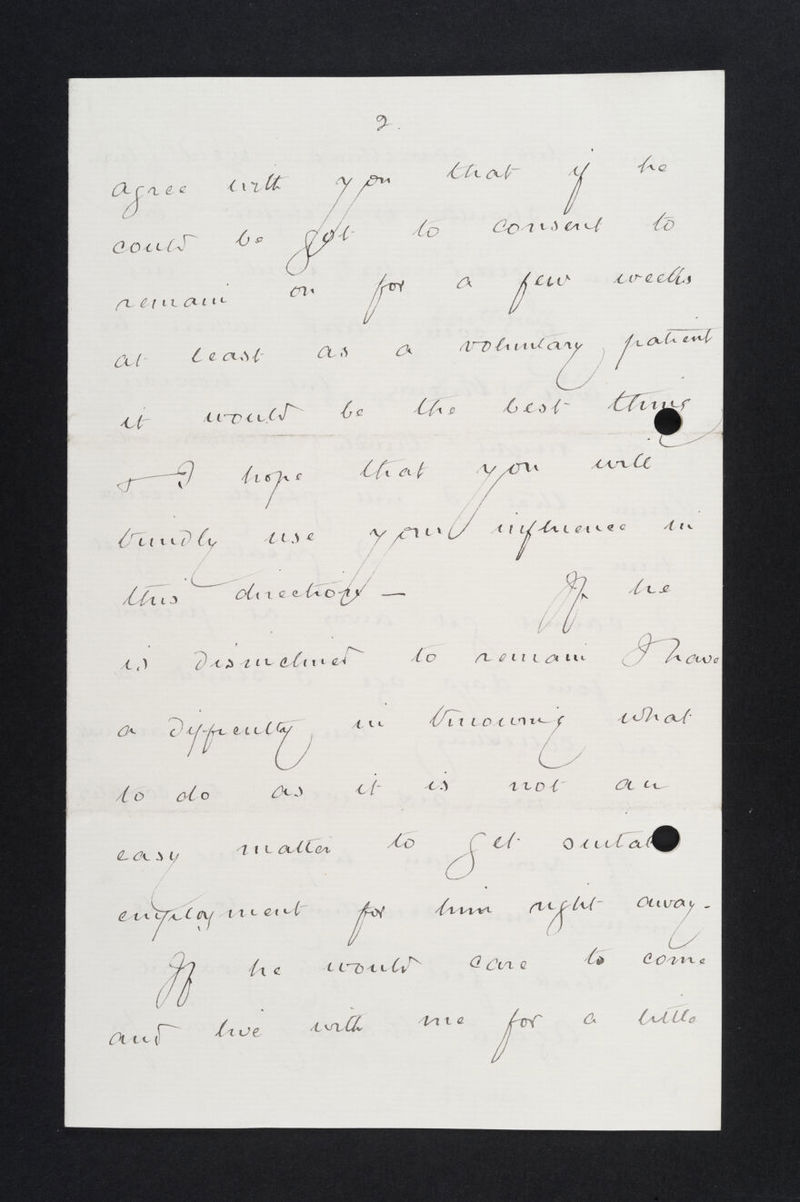 2.
agree with you that if he
could be got to consent to
remain on for a few weeks
at least as a voluntary patient
it would be the best thing
& I hope that you will
kindly use your influence in
this direction — If he
is disinclined to remain I have
a difficulty in knowing what
to do as it is not an
easy matter to get suitab
employment for him right away -
If he would care to come
and live with me for a little